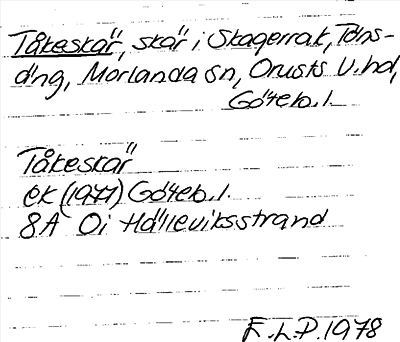 Tåkeskär, skär i Skagerrak, Täns-
äng, Morlanda sn, Orusts V. hd,
Göteb. l.
Tåkeskär
ek (1977) Göteb. l.
8A 0i Hälleviksstrand
F.L.P. 1978